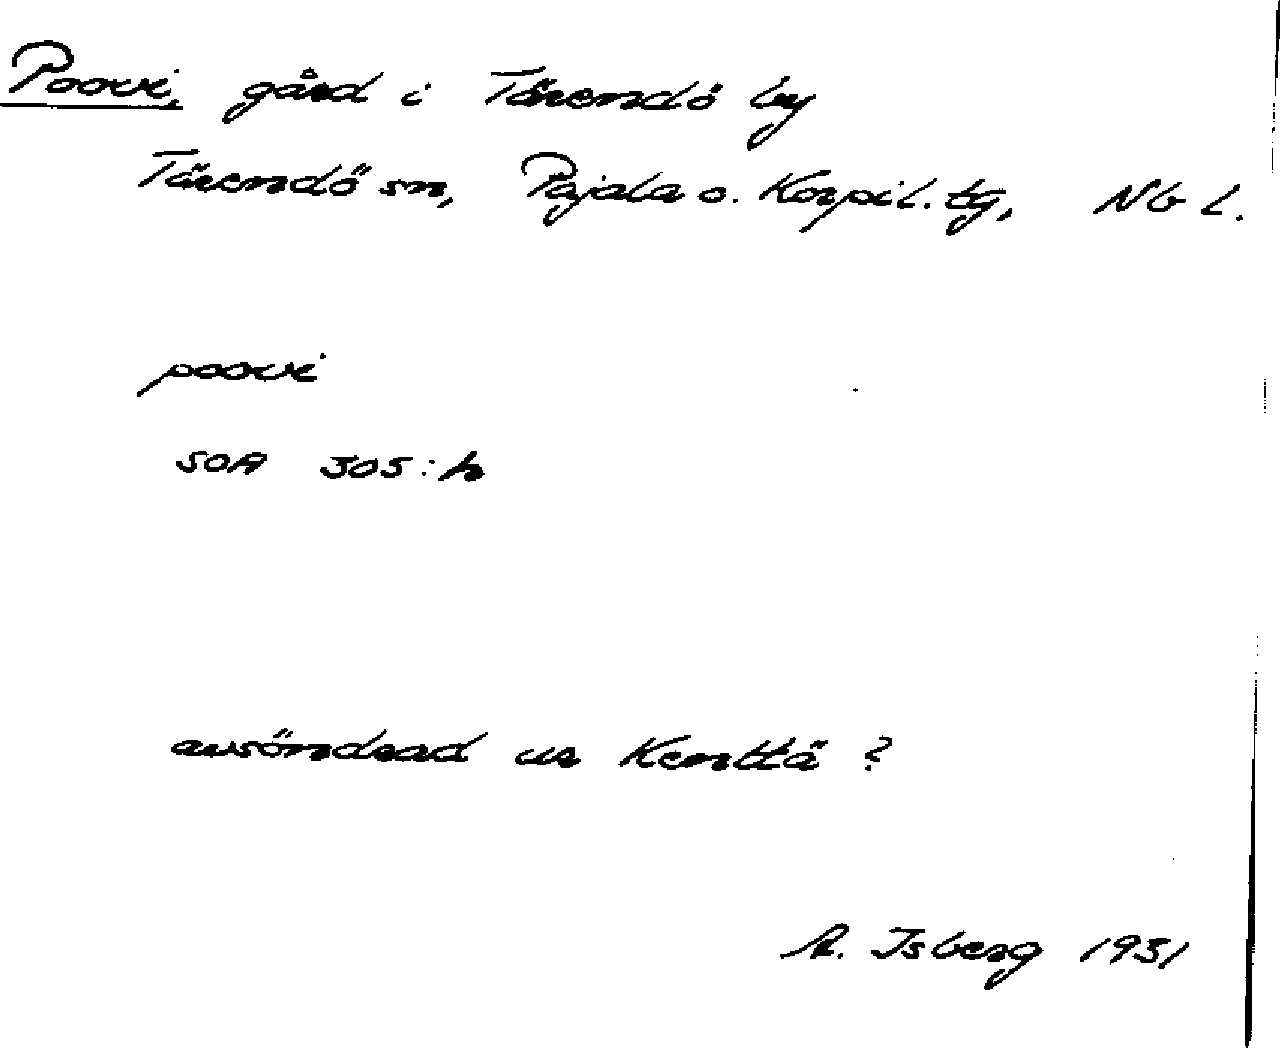 Poovi, gård i Tärendö by
Tärendö sn, Pajala o. Korpil. tg, Nb l.
poovi
SOA 305:h
avsöndrad ur Kenttä ?
A. Isberg 1931